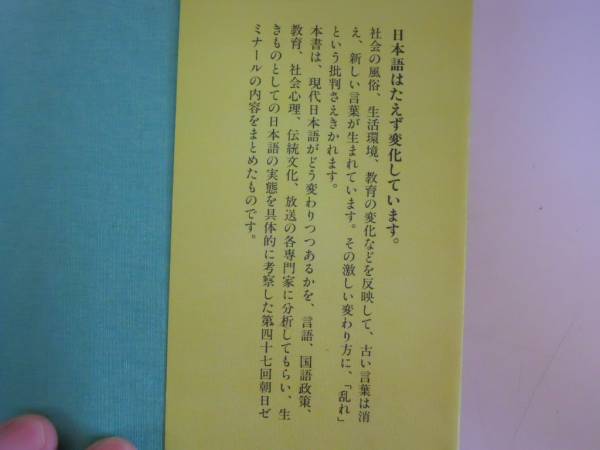 日本語はたえず変化しています。
社会の風俗、生活環境、教育の変化などを反映して、古い言葉は消
え、新しい言葉が生まれています。その激しい変わり方に、「乱れ」
という批判さえきかれます。
本書は、現代日本語がどう変わりつつあるかを、言語、国語政策、
教育、社会心理、伝統文化、放送の各専門家に分析してもらい、生
きものとしての日本語の実態を具体的に考察した第四十七回朝日ゼ
ミナールの内容をまとめたものです。